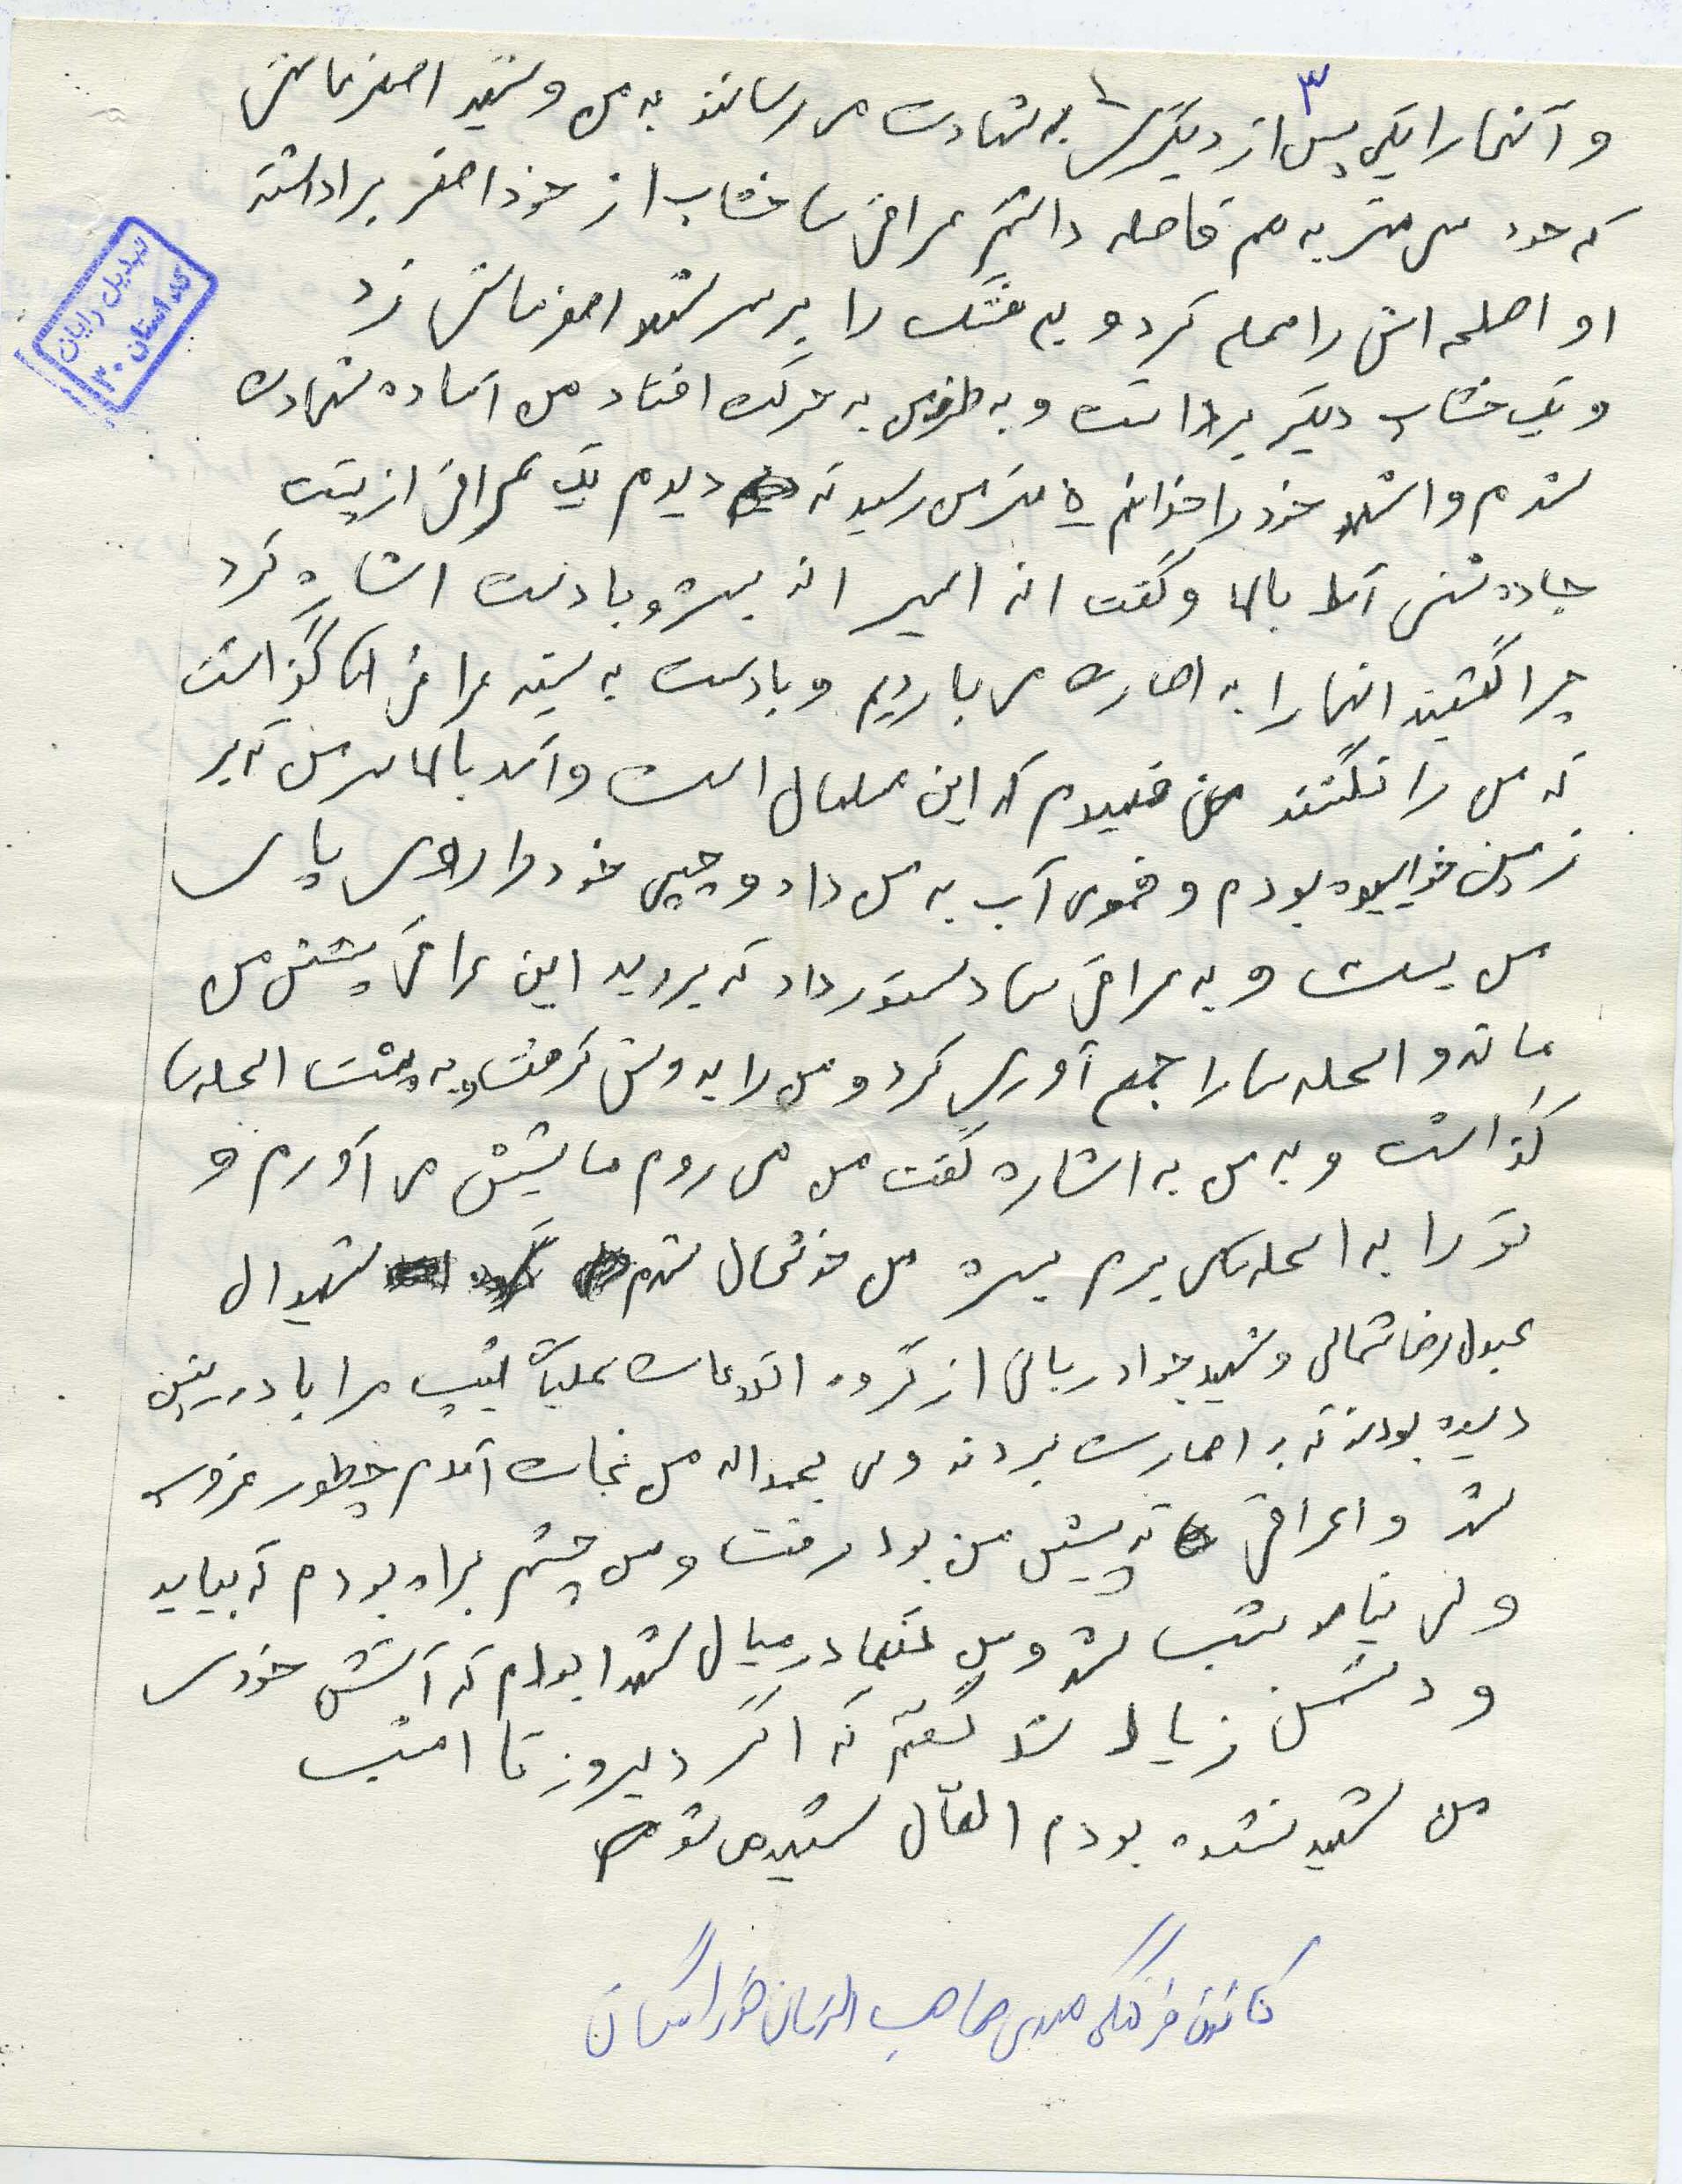 ۳
و آنها را یکی پس از دیگری به شهادت می رساندند به من و شهید اصغر
که حدود سی متر به هم فاصله داشتیم عراقی ها خشاب از خود اصغر برداشته
او اصلحه اش را مسلح کرد و به فشنگ را بر سر شهید اصغر زد
و یک خشاب دیگر برداشت و به طرف من به حرکت افتاد من آماده شهادت
شدم و اشهد خود را خواندم ۵ متری من رسید که دیدم یک عراقی از پشت
جاده شنی آمد بالا و گفت انه اسیر انه بسه و با دست اشاره کرد
چرا کشتید انها را به اصارت می باردیم و با دست به سینه عراقی ها گذاشت
که من را نکشند من فهمیدم که این مسلمان است و آمد بالا سر من که بر
زمین خوابیده بودم و قموی آب به من داد و چپی خود را روی پای
من بست و به عراقی ها دستور داد که بروید این عراقی پیش من
ماند و اسحله ها را جمع آوری کرد و من را به دوش گرفت و به پشت اسحله ها
گذاشت و به من به اشاره گفت من می روم ماشین می آورم و
تو را به اسحله می برم بسره من خوشحال شدم شهیدان
عبدلرضا شمالی و شهید جواد ربانی از گروه اتلاعات عملیات تیپ مرا با دوربین
دیده بودند که به اصارت بردند ولی بحمداله من نجات آمدم چطور غروب
شد و اعراقی که پیش من بود رفت و من چشم براه بودم که بیاید
ولی نیامد شب شد و من تنها در میان شهدا بودم که آتش خودی
و دشمن زیاد شد گفتم که اگر دیروز تا امشب
من شهید نشده بودم الئان شهید می شوم
کانون فرهنگی مهدی صاحب الزمان خوراسگان
تبدیل رایان
کد استان ۳۰